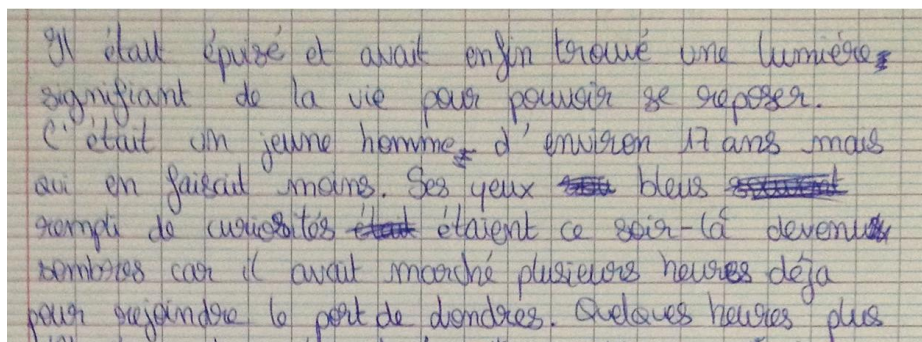 Il était épuisé et avait enfin trouvé une lumière
signifiant de la vie pour pouvoir se reposer.
C'était un jeune homme d'environ 17 ans mais
qui en faisait moins. Ses yeux bleus
rempli de curiosités étaient ce soir-là devenu
sombres car il avait marché plusieurs heures déja
pour rejoindre le port de Londres. Quelques heures plus